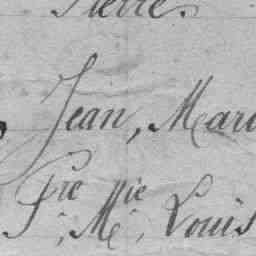 Pierre.
Jean, Mar
Pre Mie, Louis